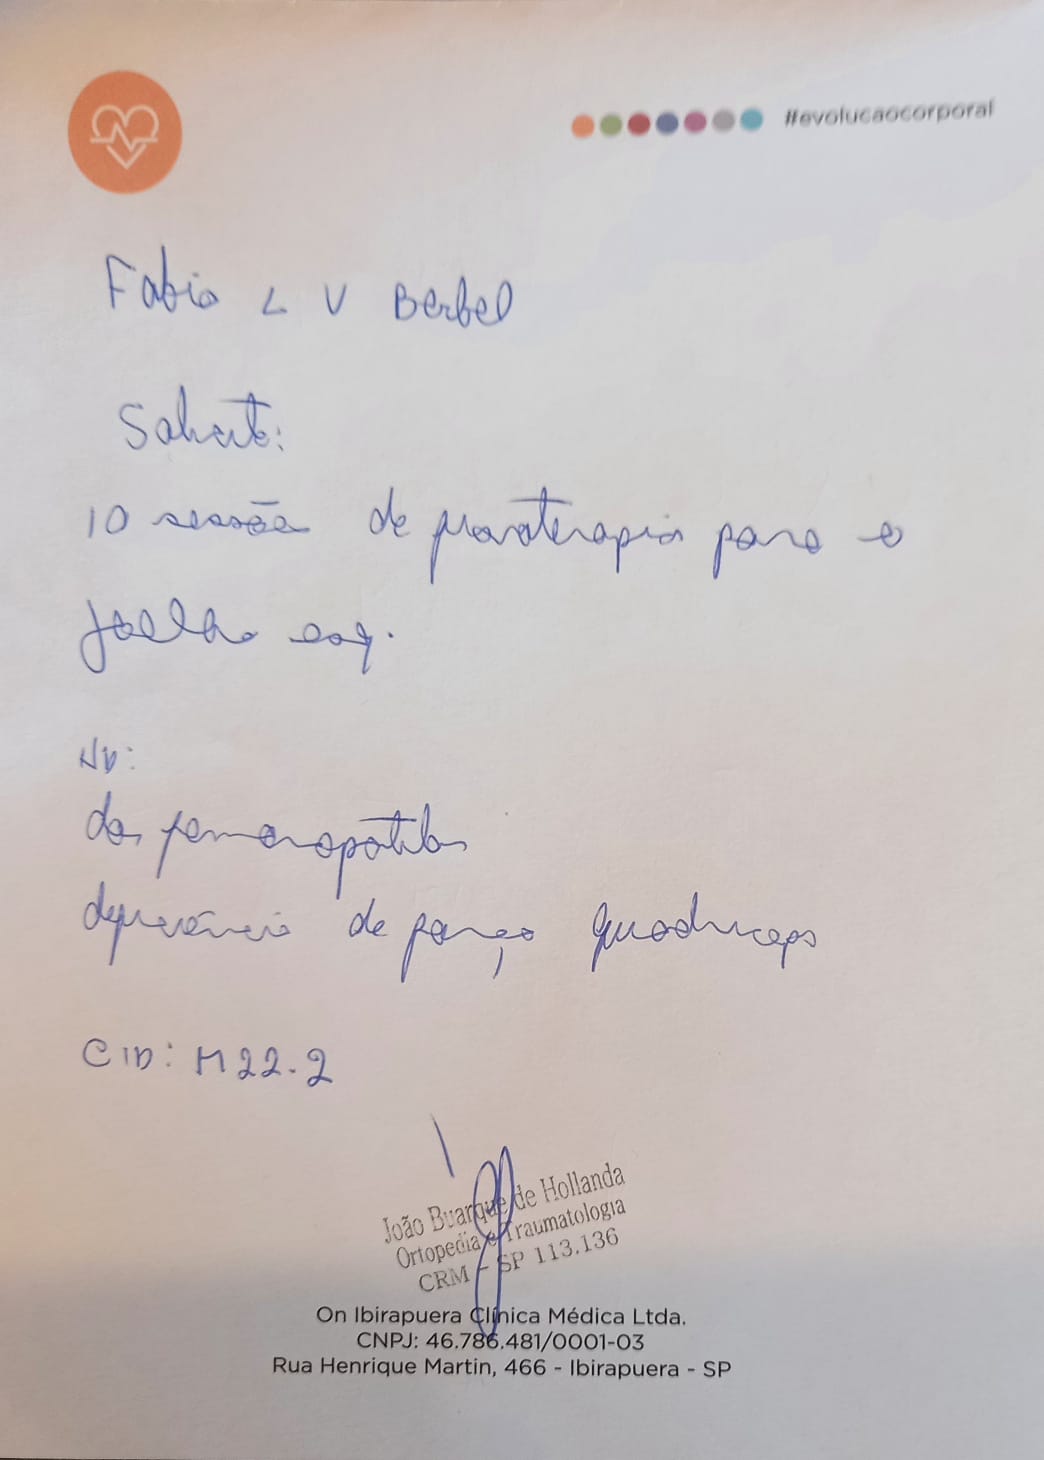 #evolucaocorporal
Fabio L V Berbel
Solicito:
10 sessão de fisioterapia para o
joelho esq.
HD:
dor femoropatelar
deficiência de força quadríceps
CID: M22.2
João Buarque de Hollanda
Ortopedia e Traumatologia
CRM - SP 113.136
On Ibirapuera Clínica Médica Ltda.
CNPJ: 46.786.481/0001-03
Rua Henrique Martin, 466 - Ibirapuera - SP